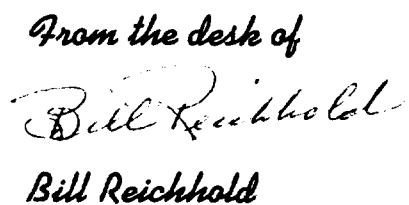 From the desk of
Bill Reichhold
Bill Reichhold